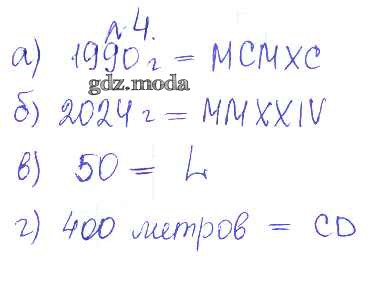 л. 4.
а) 1990 г = MCMXC
gdz.moda
б) 2024 г = MMXXIV
в) 50 = L
г) 400 метров = CD